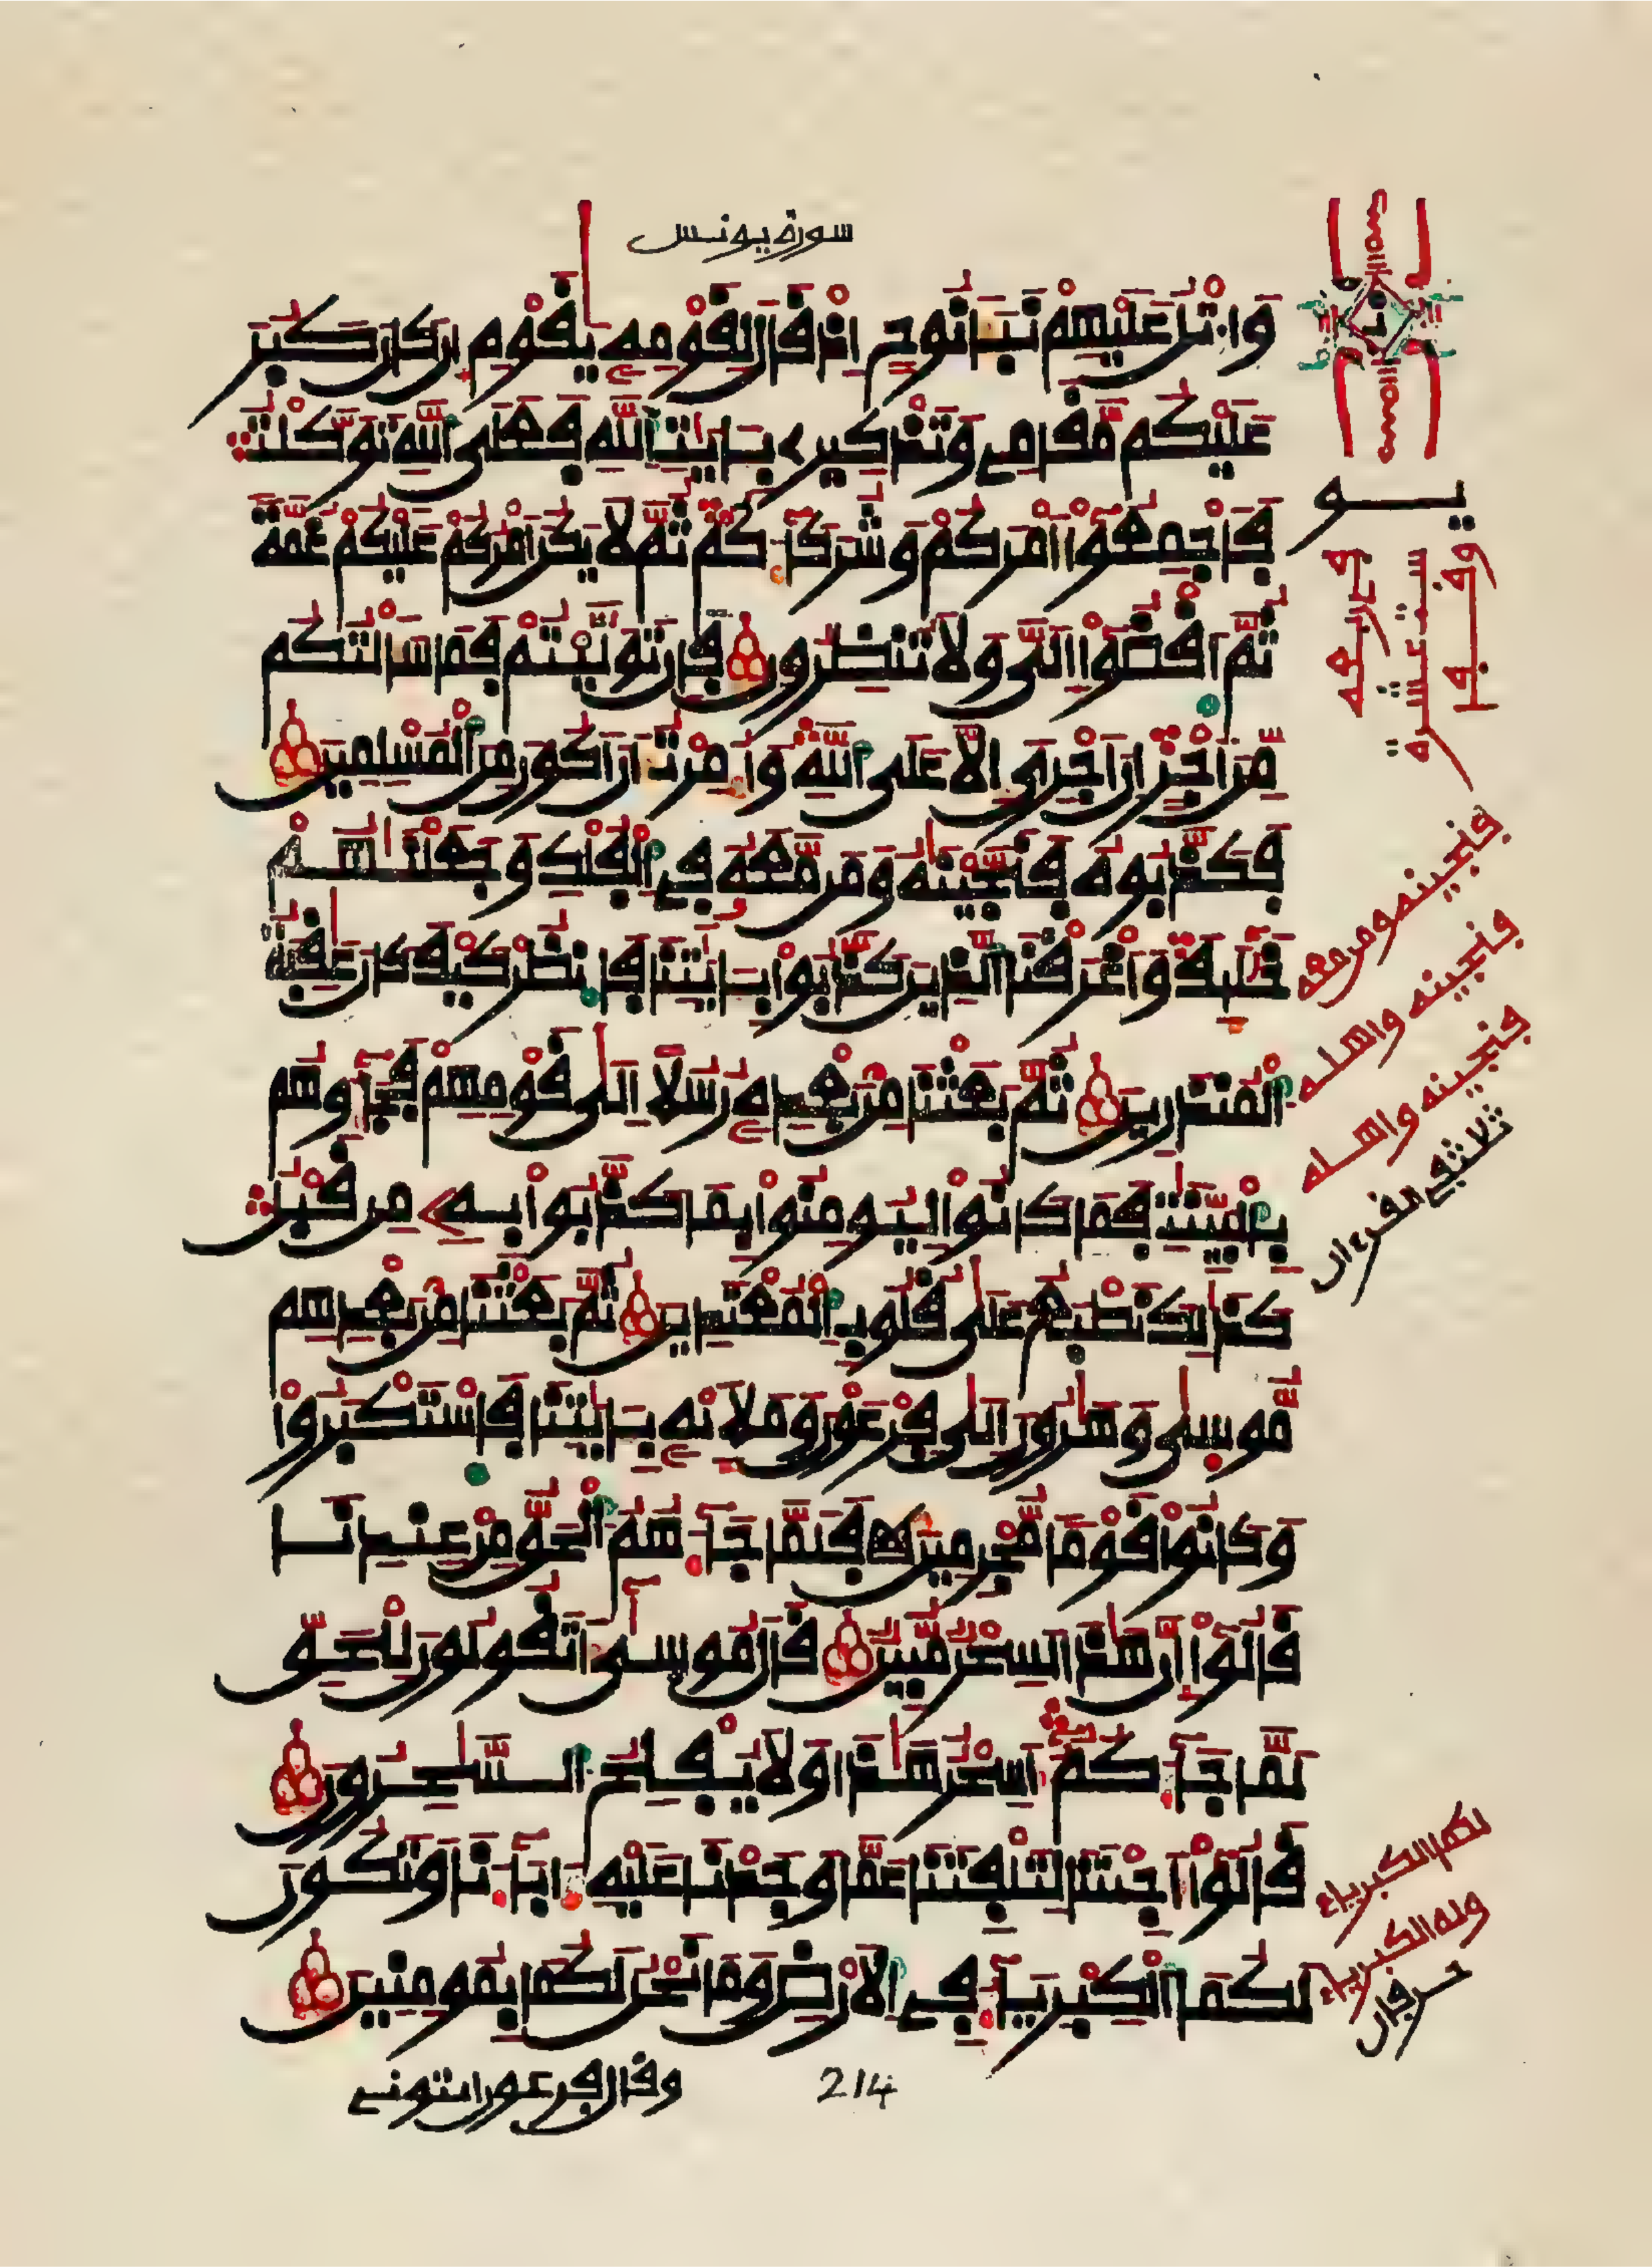 سورة يونس
وَاتْلُ عَلَيْهِمْ نَبَأَ نُوحٍ اِذْ قَالَ لِقَوْمِهِۦ يَٰقَوْمِ إِن كَانَ كَبُرَ
عَلَيْكُم مَّقَامِے وَتَذْكِيرِے بِـَٔايَٰتِ اِ۬للَّهِ فَعَلَي اَ۬للَّهِ تَوَكَّلْتُ
فَأَجْمِعُوٓاْ أَمْرَكُمْ وَشُرَكَآءَكُمْ ثُمَّ لَا يَكُنَ اَمْرُكُمْ عَلَيْكُمْ غُمَّةٗ
ثُمَّ اَ۪قْضُوٓاْ إِلَيَّ وَلَا تُنظِرُونِ فَإِن تَوَلَّيْتُمْ فَمَا سَأَلْتُكُم
مِّنَ اَجْرٍ اِنَ اَجْرِيَ إِلَّا عَلَي اَ۬للَّهِ وَأُمِرْتُ أَنَ اَكُونَ مِنَ اَ۬لْمُسْلِمِينَ
فَكَذَّبُوهُ فَنَجَّيْنَٰهُ وَمَن مَّعَهُۥ فِے اِ۬لْفُلْكِ وَجَعَلْنَٰهُمْ
خَلَٰٓئِفَ وَأَغْرَقْنَا اَ۬لذِينَ كَذَّبُواْ بِـَٔايَٰتِنَا فَانظُرْ كَيْفَ كَانَ عَٰقِبَةُ
اُ۬لْمُنذَرِينَ ثُمَّ بَعَثْنَا مِنۢ بَعْدِهِۦ رُسُلًا اِلَيٰ قَوْمِهِمْ فَجَآءُوهُم
بِالْبَيِّنَٰتِ فَمَا كَانُواْ لِيُومِنُواْ بِمَا كَذَّبُواْ بِهِۦ مِن قَبْلُ
كَذَٰلِكَ نَطْبَعُ عَلَيٰ قُلُوبِ اِ۬لْمُعْتَدِينَ ثُمَّ بَعَثْنَا مِنۢ بَعْدِهِم
مُّوسَيٰ وَهَٰرُونَ إِلَيٰ فِرْعَوْنَ وَمَلَإِيْهِۦ بِـَٔايَٰتِنَا فَاسْتَكْبَرُواْ
وَكَانُواْ قَوْمٗا مُّجْرِمِينَ فَلَمَّا جَآءَهُمُ اُ۬لْحَقُّ مِنْ عِندِنَا
قَالُوٓاْ إِنَّ هَٰذَا لَسِحْرٞ مُّبِينٞ قَالَ مُوسَيٰٓ أَتَقُولُونَ لِلْحَقِّ
لَمَّا جَآءَكُمُۥٓ أَسِحْرٌ هَٰذَا وَلَا يُفْلِحُ اُ۬لسَّٰحِرُونَ
قَالُوٓاْ أَجِيْتَنَا لِتَلْفِتَنَا عَمَّا وَجَدْنَا عَلَيْهِ ءَابَآءَنَا وَتَكُونَ
لَكُمَا اَ۬لْكِبْرِيَآءُ فِے اِ۬لَارْضِ وَمَا نَحْنُ لَكُمَا بِمُومِنِينَ
وقال فرعون ايتونے
214
فنجينه ومن معه
فنجينه واهله
فنجينه واهله
ثلاث في القرءان
لكما الكبرياء
وله الكبرياء
حرفان